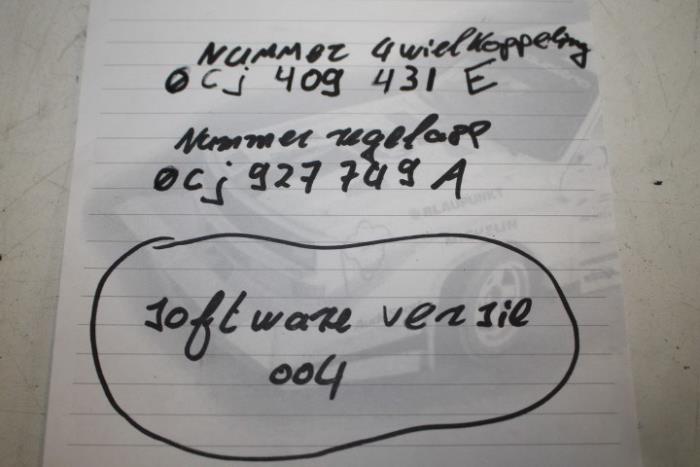 Nummer 4wielkoppeling
0cj 409 431 E
Nummer regelapp
0cj 927 749 A
BLAUPUNKT
MICHELIN
software versie
004